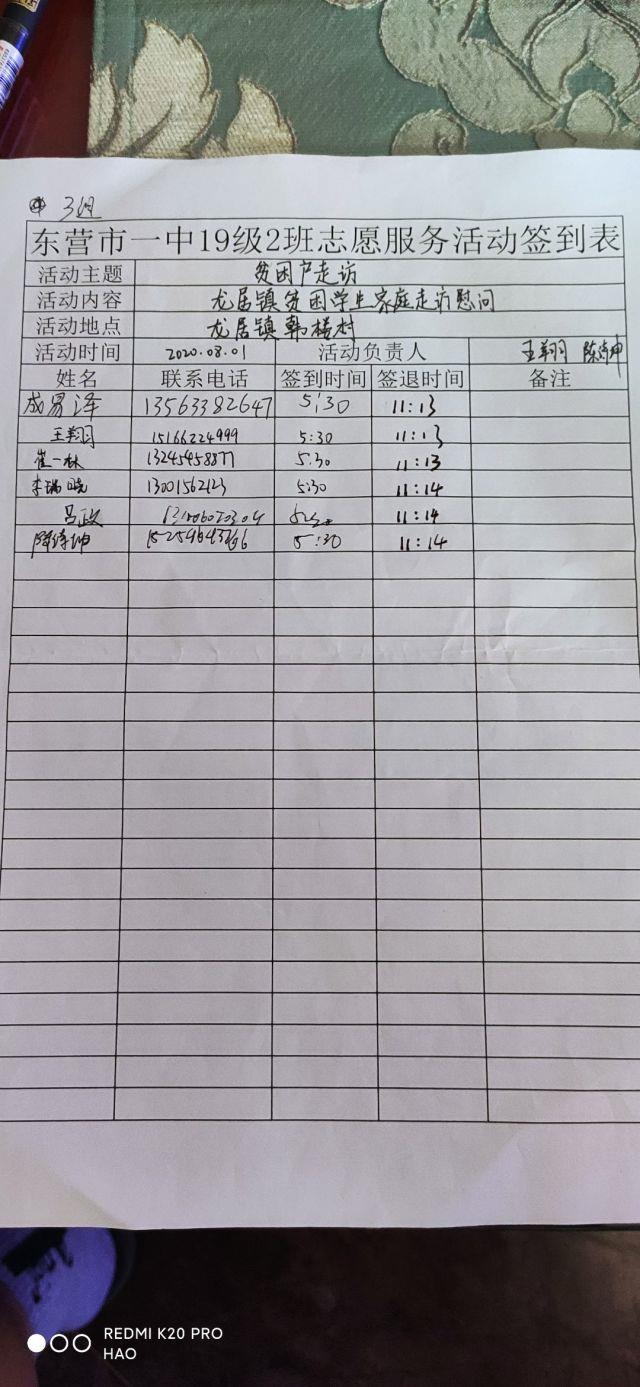 3组
东营市一中19级2班志愿服务活动签到表
活动主题 贫困户走访
活动内容 龙居镇贫困学生家庭走访慰问
活动地点 龙居镇韩楼村
活动时间 2020.08.01 活动负责人 王翔羽
姓名 联系电话 签到时间 签退时间 备注
成易泽 13563382647 5:30 11:13
王翔羽 15166224999 5:30 11:13
崔一林 13245458877 5:30 11:13
李瑞晓 13001562123 5:30 11:14
吕政 11:14
5:30 11:14
REDMI K20 PRO
HAO